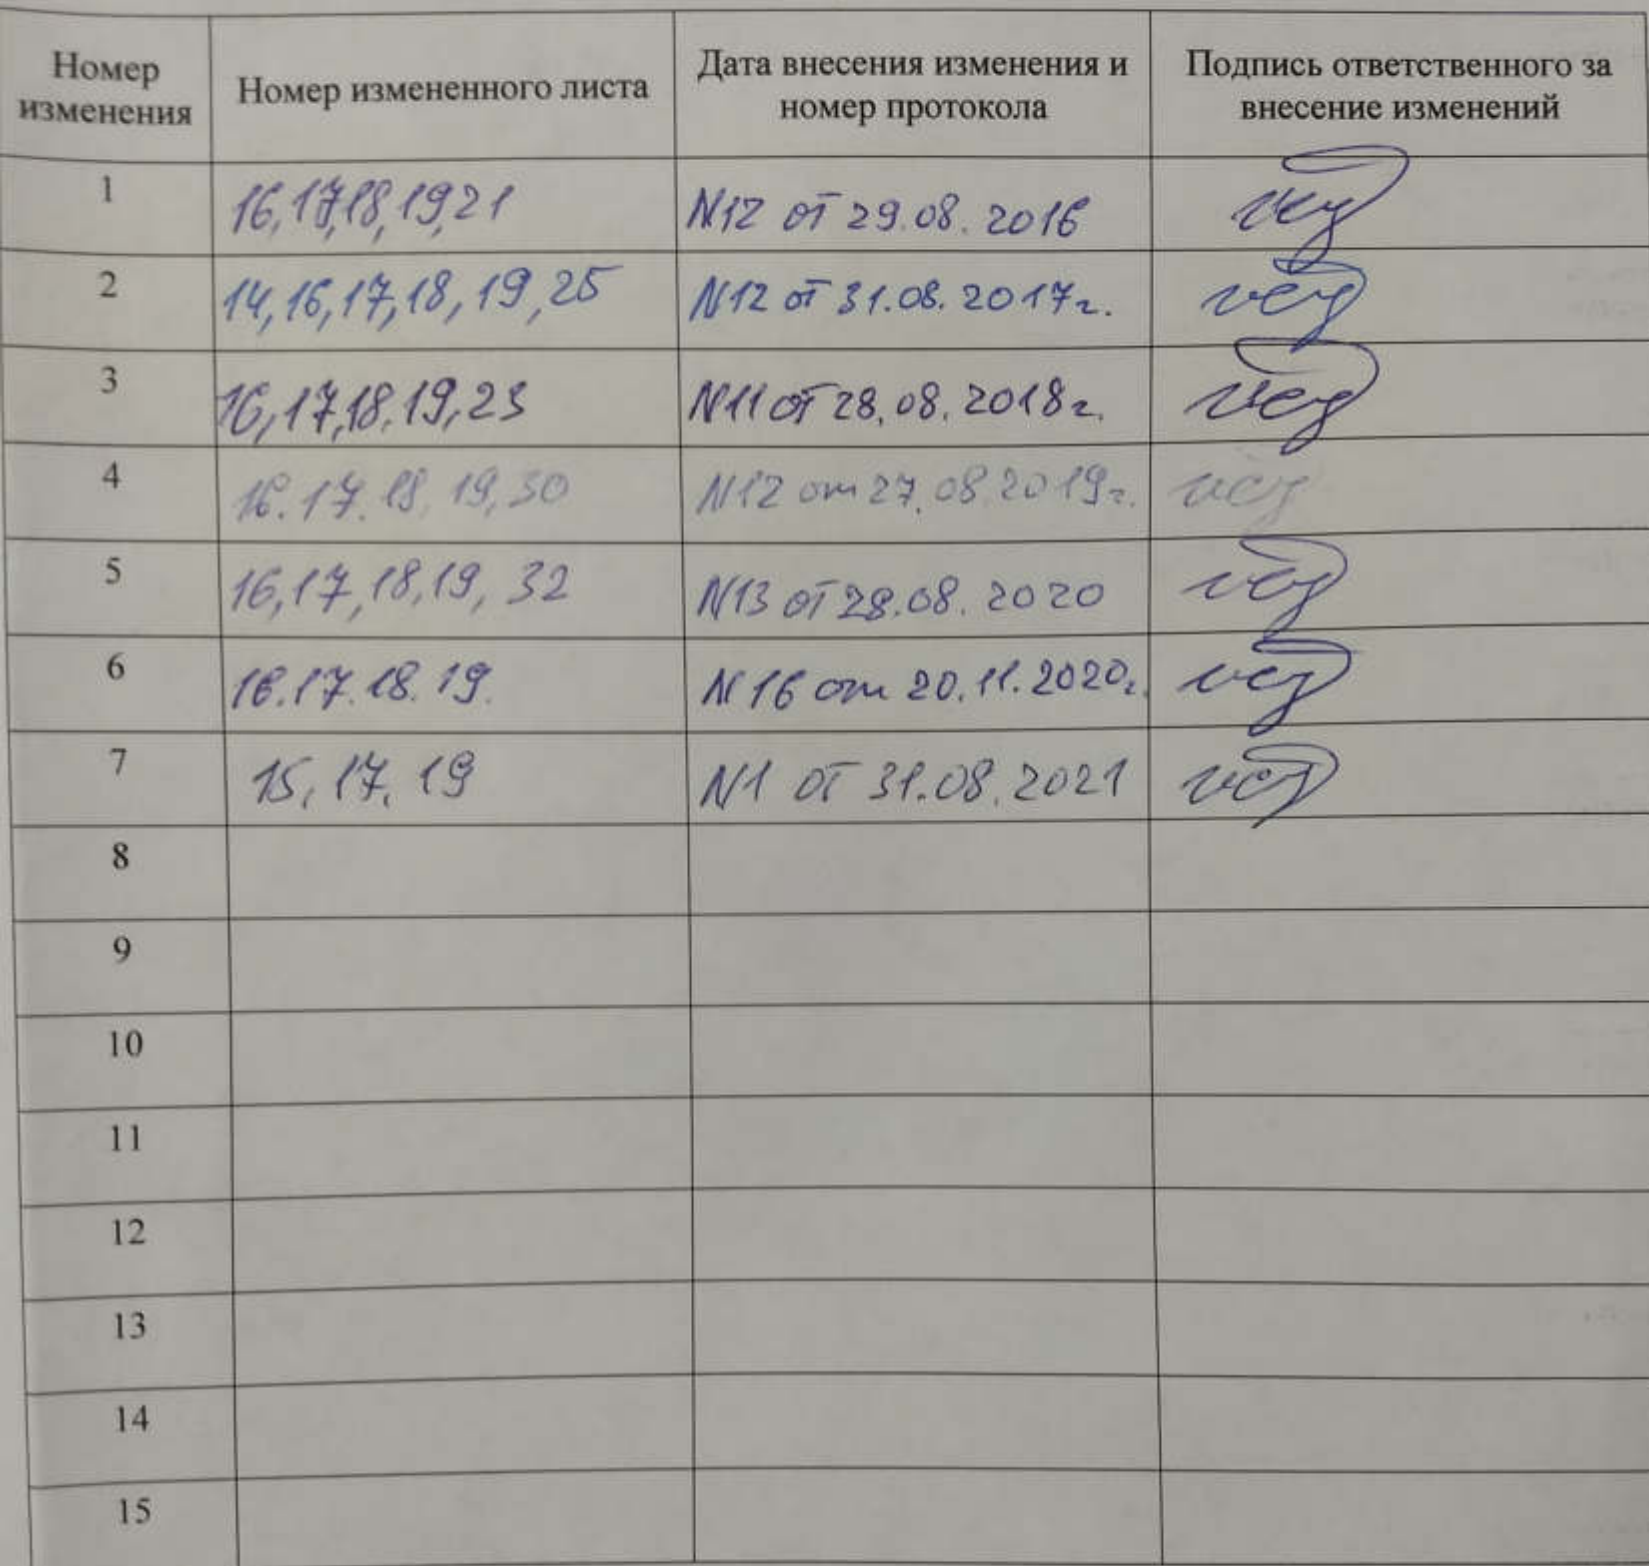 Номер изменения
Номер измененного листа
Дата внесения изменения и номер протокола
Подпись ответственного за внесение изменений
1 16,17,18,19,21 N12 от 29.08.2016
2 14,16,17,18,19,25 N12 от 31.08.2017г.
3 16,17,18,19,23 N11 от 28.08.2018г.
4 16.17.18,19,30 N12 от 27.08.2019г.
5 16,17,18,19,32 N13 от 28.08.2020
6 16.17.18.19. N16 от 20.11.2020г.
7 15,17,19 N1 от 31.08.2021
8
9
10
11
12
13
14
15